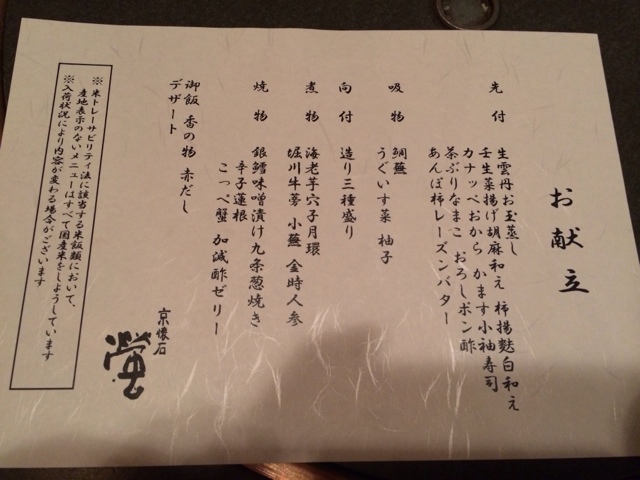 お献立
先付
生雲丹お玉蒸し 柿揚麩白和え
壬生菜揚げ胡麻和え かます小袖寿司
カナッペおから おろしポン酢
茶ぶりなまこ
あんぽ柿レーズンバター
吸物
鯛蕪
うぐいす菜 柚子
向付
造り三種盛り
煮物
海老芋穴子月環
堀川牛蒡 小蕪 金時人参
焼物
銀鱈味噌漬け九条葱焼き
辛子蓮根
こっぺ蟹 加減酢ゼリー
御飯 香の物 赤だし
デザート
京懐石
螢
※米トレーサビリティ法に該当する米飯類において、
産地表示のないメニューはすべて国産米をしようしています
※入荷状況により内容が変わる場合がございます